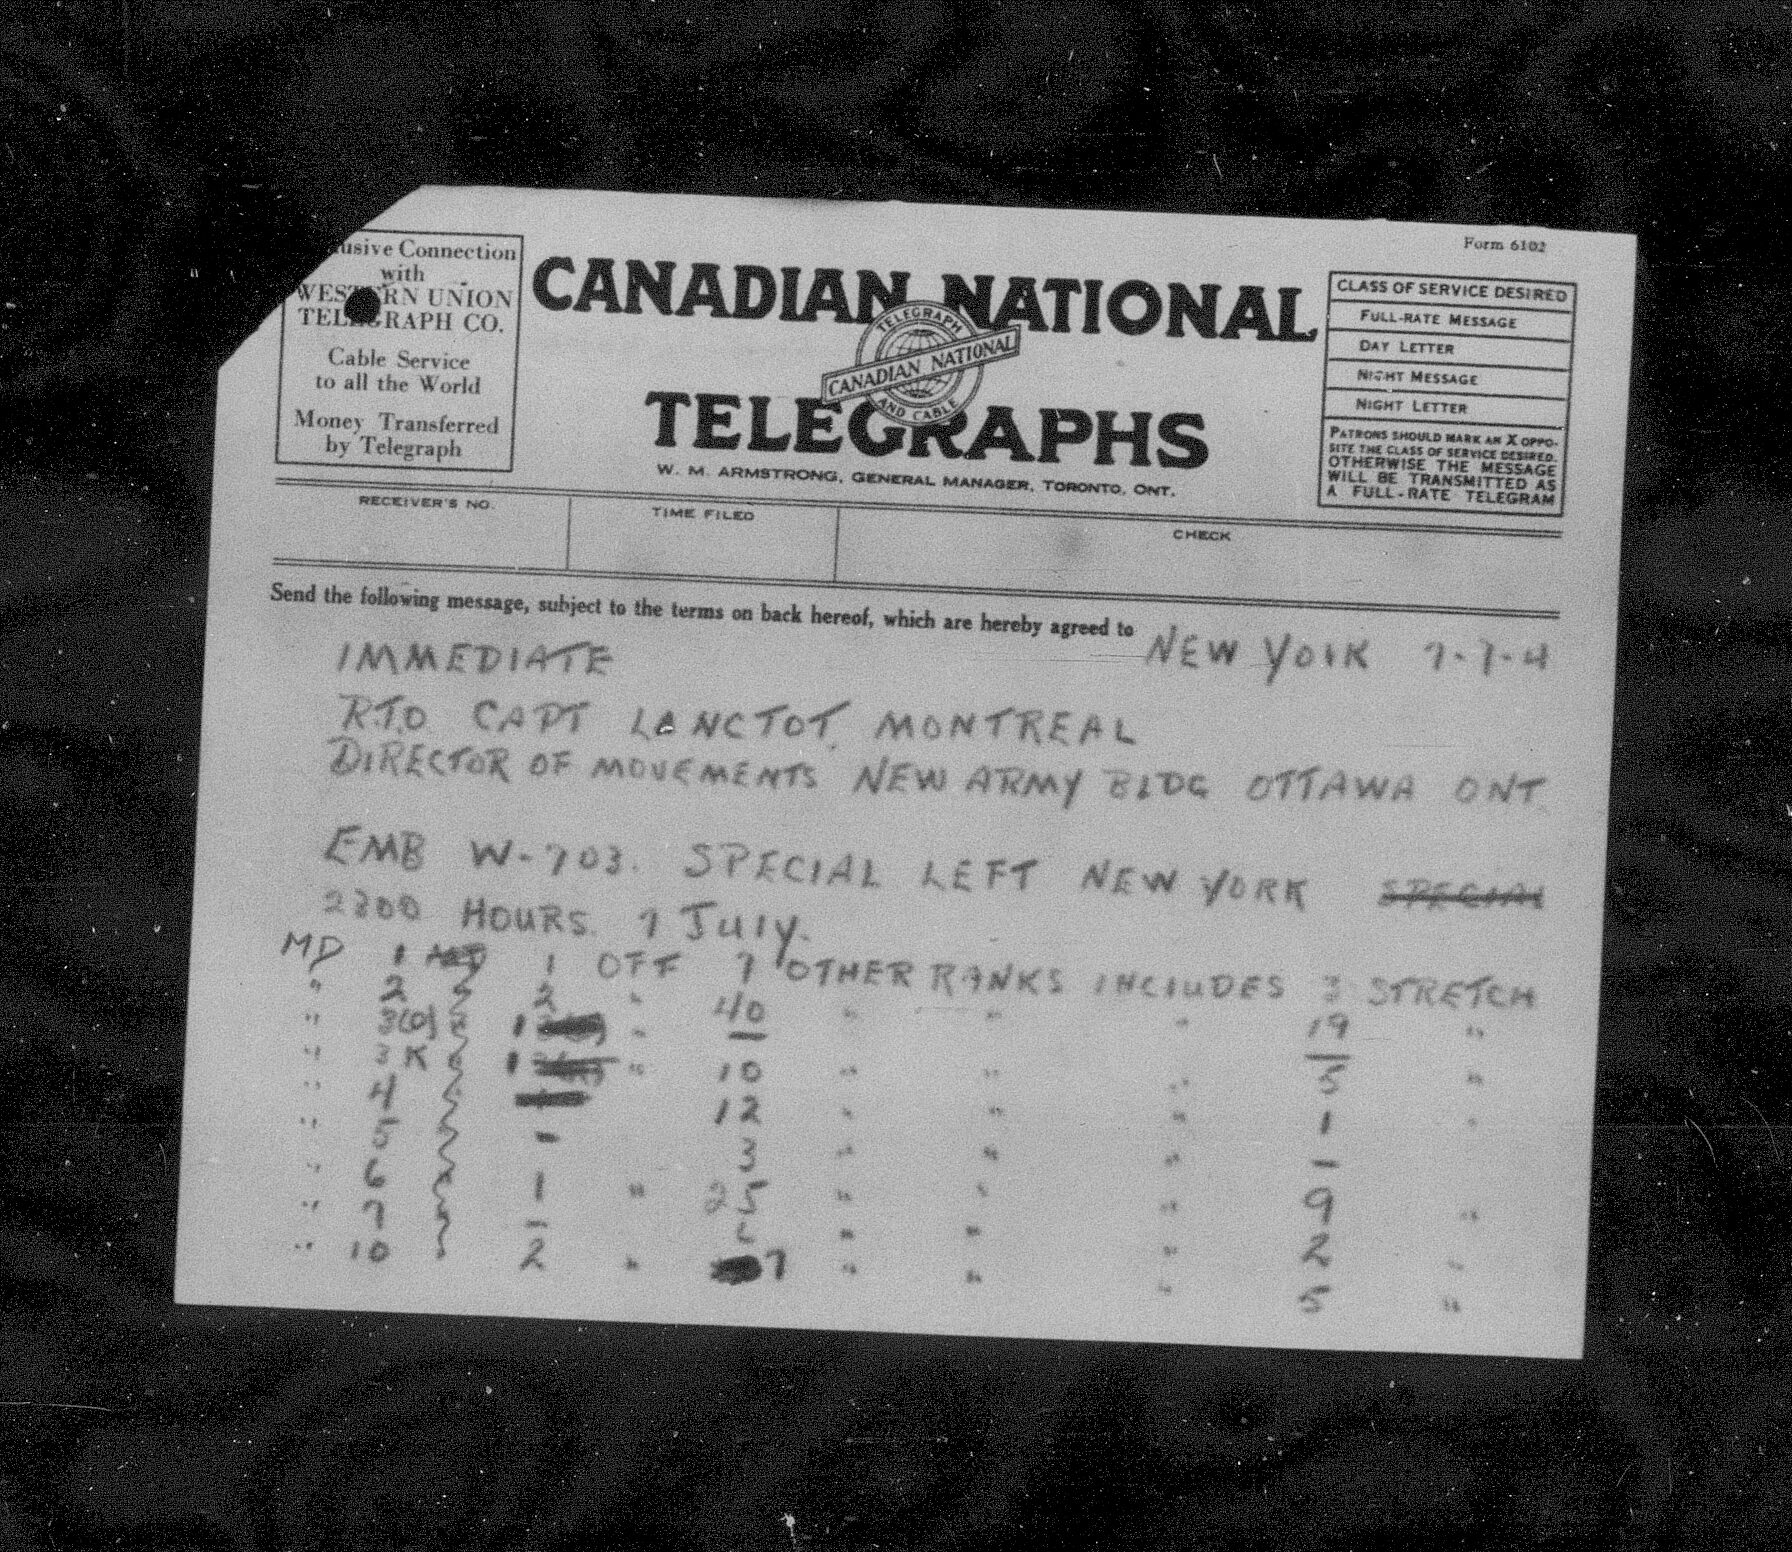 Form 6102
usive Connection
with
WESTERN UNION
TELEGRAPH CO.
Cable Service
to all the World
Money Transferred
by Telegraph
CANADIAN NATIONAL
TELEGRAPH
CANADIAN NATIONAL
AND CABLE
TELEGRAPHS
W. M. ARMSTRONG, GENERAL MANAGER, TORONTO, ONT.
CLASS OF SERVICE DESIRED
FULL-RATE MESSAGE
DAY LETTER
NIGHT MESSAGE
NIGHT LETTER
PATRONS SHOULD MARK AN X OPPO-
SITE THE CLASS OF SERVICE DESIRED.
OTHERWISE THE MESSAGE
WILL BE TRANSMITTED AS
A FULL-RATE TELEGRAM
RECEIVER'S NO. TIME FILED CHECK
Send the following message, subject to the terms on back hereof, which are hereby agreed to
NEW YORK 7-7-4
IMMEDIATE
R.T.O CAPT LANCTOT, MONTREAL
DIRECTOR OF MOVEMENTS NEW ARMY BLDG OTTAWA ONT
EMB W-703. SPECIAL LEFT NEW YORK SPECIAL
2300 HOURS. 7 July.
MD 1 1 OFF 7 OTHER RANKS INCLUDES 3 STRETCH
" 2 2 " 40 " " " 19 "
" 3(O) 1 " — —
" 3 K 1 " 10 " " " 5 "
" 4 12 " " " 1 "
" 5 - 3 " " " —
" 6 1 " 25 " " " 9 "
" 7 — " " " 2 "
" 10 2 " 7 " " " 5 "